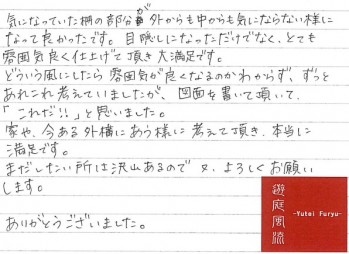 気になっていた柵の部分が外からも中からも気にならない様に
なって良かったです。目隠しになっただけでなく、とても
雰囲気良く仕上げて頂き大満足です。
どういう風にしたら雰囲気が良くなるのかわからず、ずっと
あれこれ考えていましたが、図面を書いて頂いて、
「これだ!!」と思いました。
家や、今ある外構にあう様に考えて頂き、本当に
満足です。
まだしたい所は沢山あるので又、よろしくお願い
します。
ありがとうございました。
遊庭風流
-Yutei Furyu-